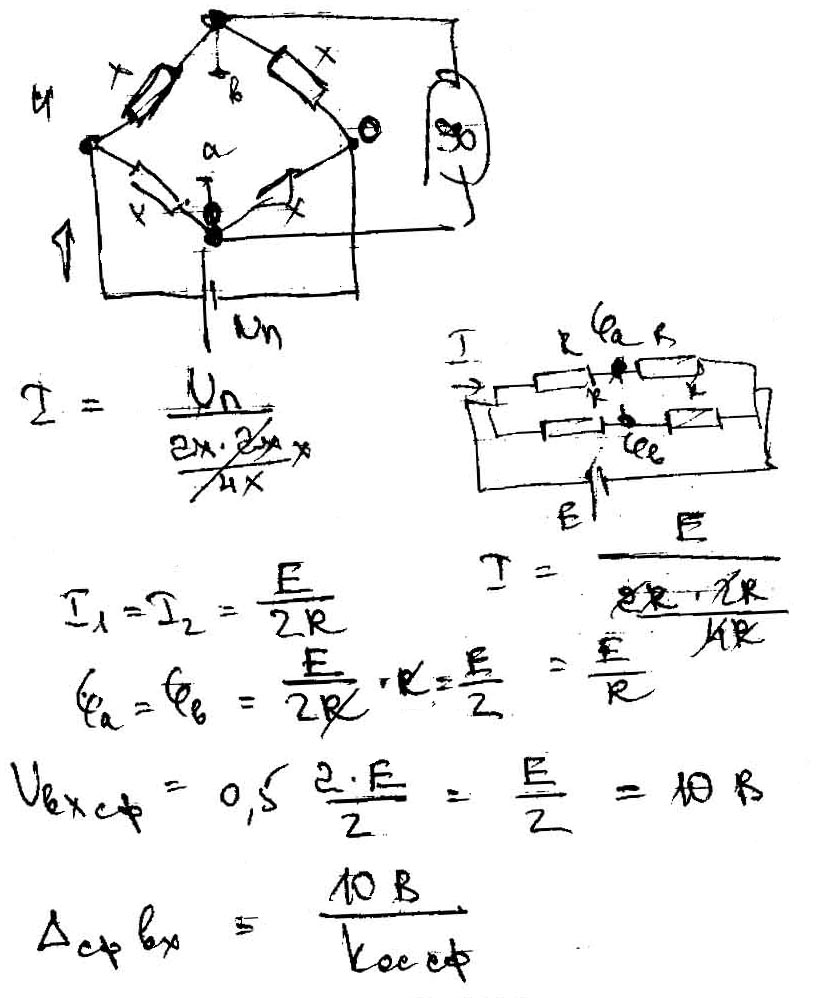 x x
в
a
x x
Uп
I = Uп / (2x · 2x / 4x) x
I R φa R
R R
φв
E
I = E / (2R · 2R / 4R) = E / R
I₁ = I₂ = E / 2R
φa = φв = E / 2R · R = E / 2
Uвх сф = 0,5 2·E / 2 = E / 2 = 10 В
Δсф вх = 10 В / Kос сф